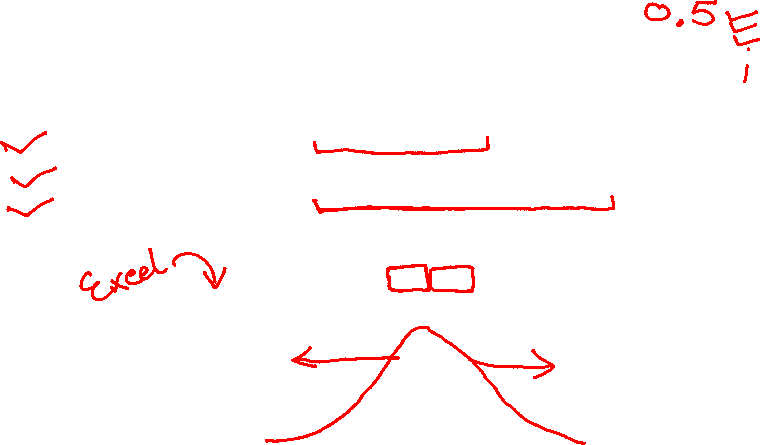 0.5
Excel